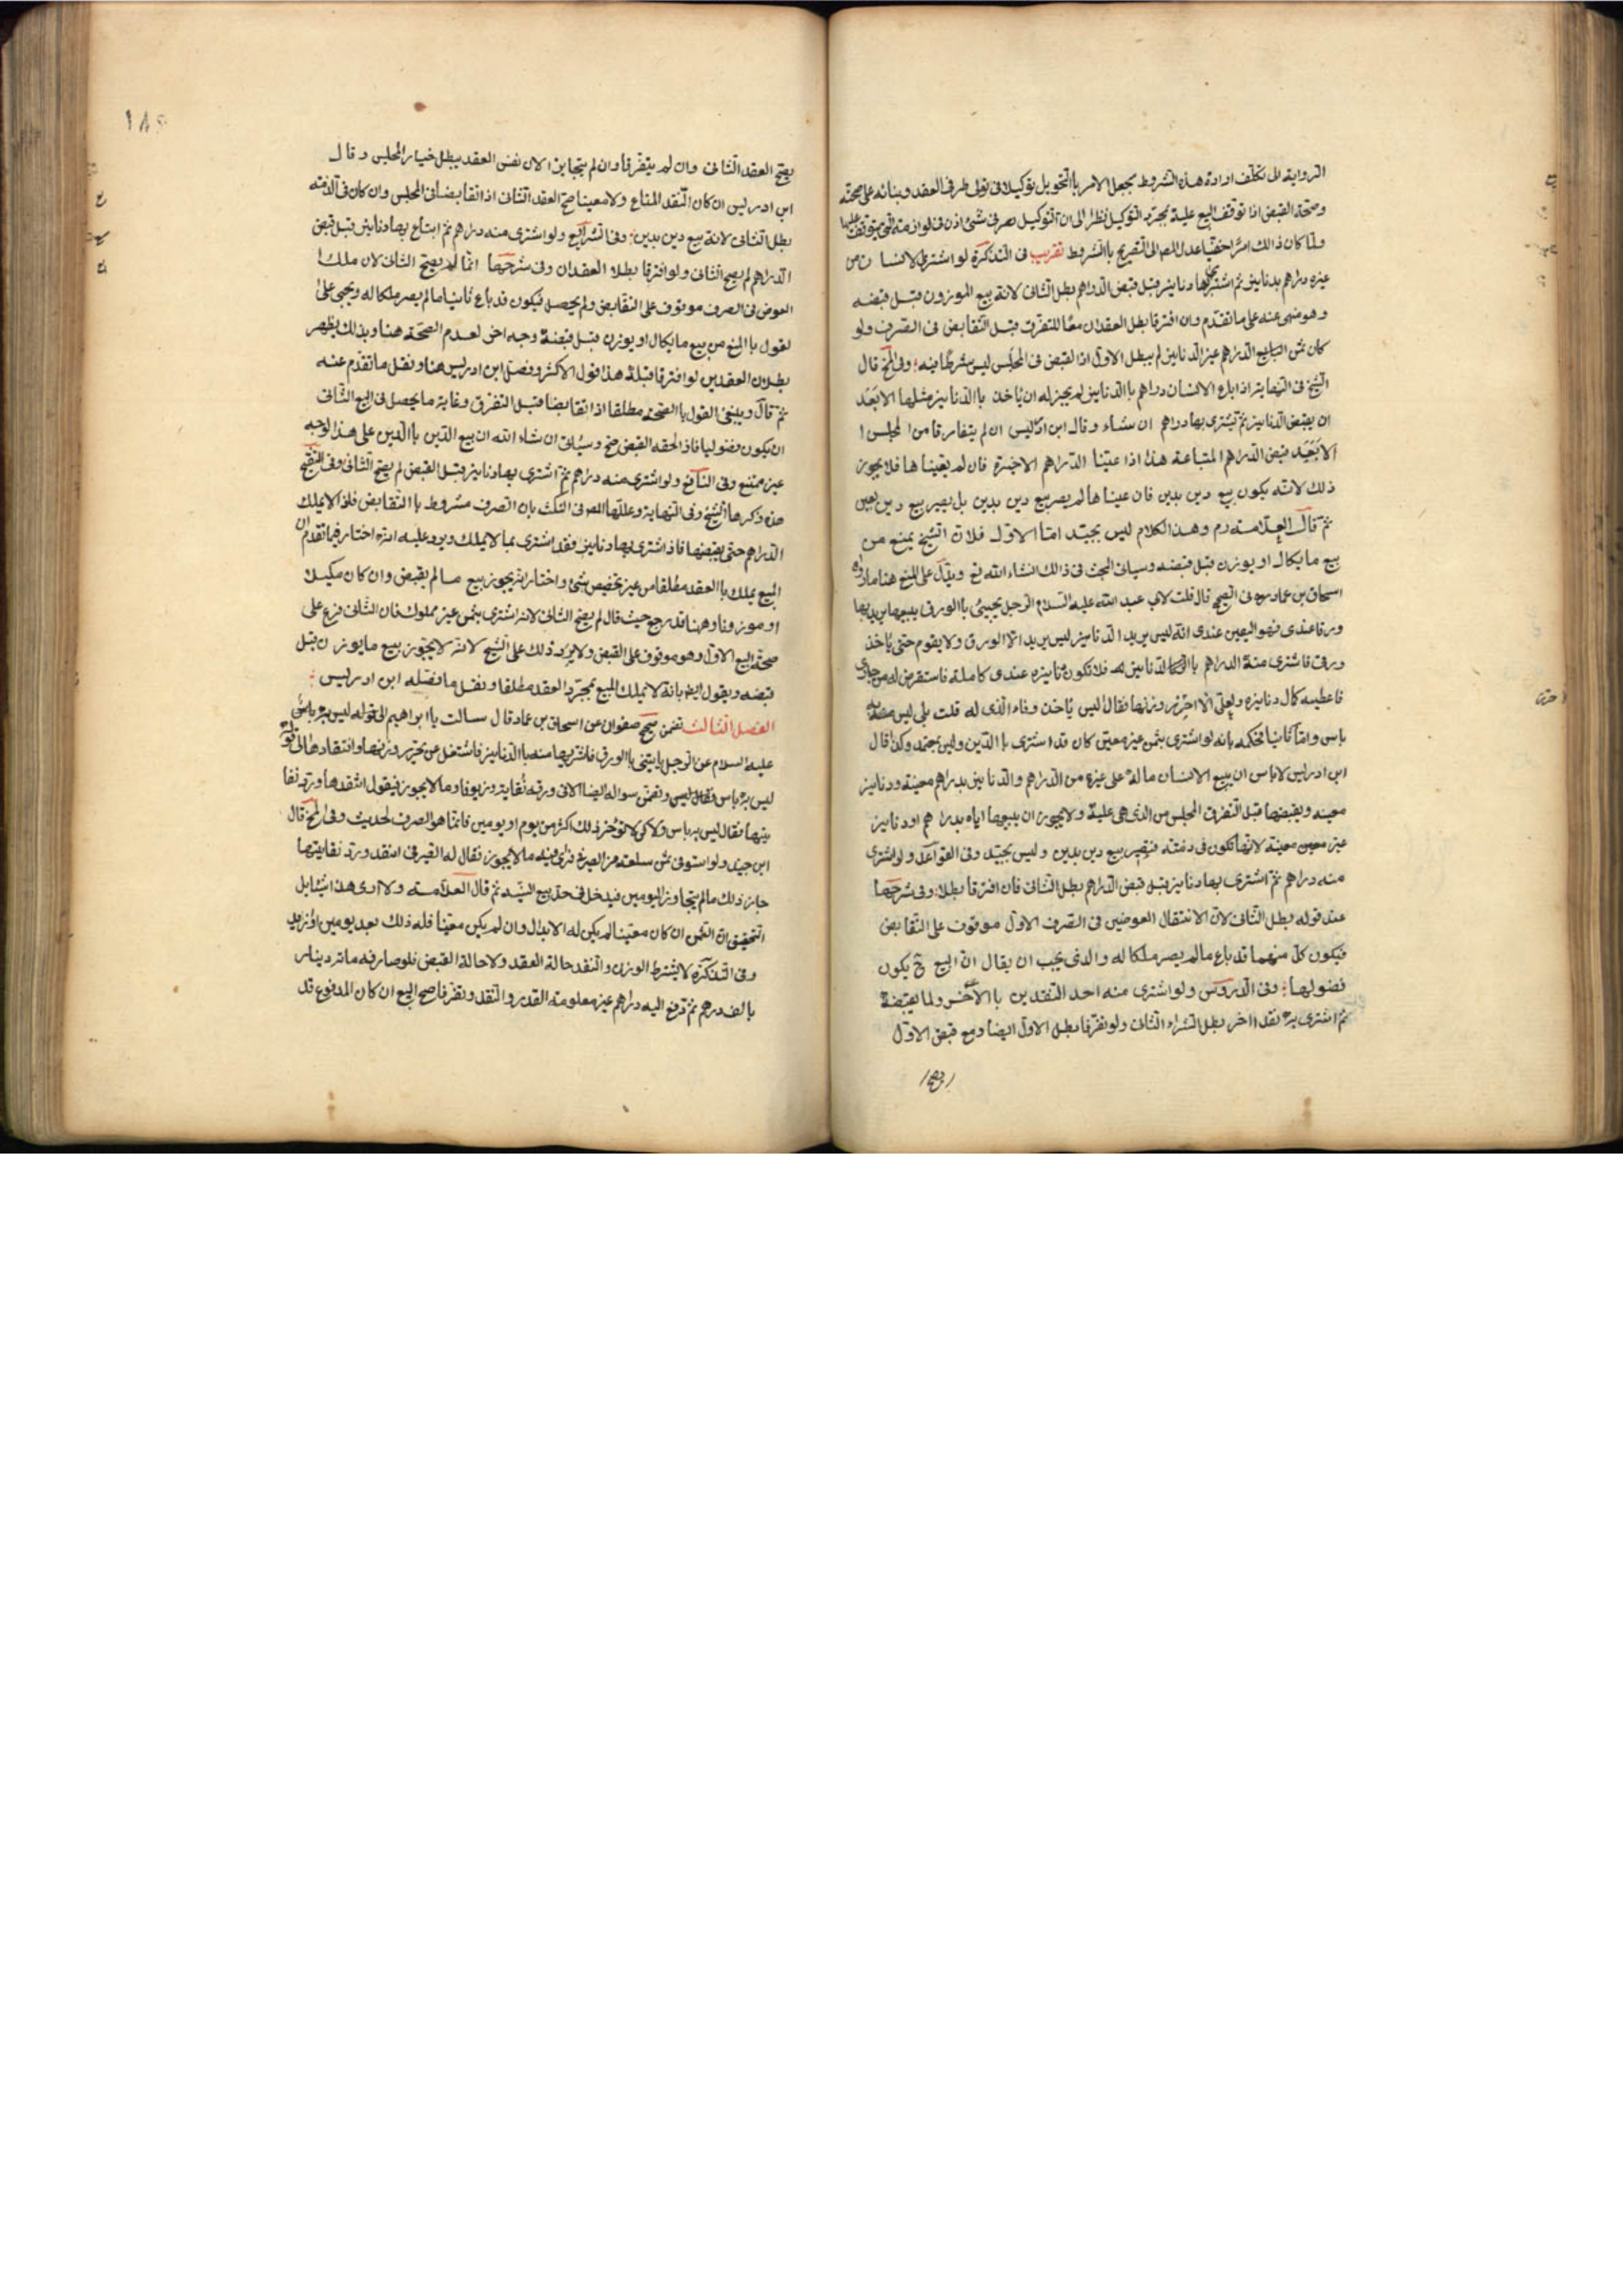 الرواية الى تكلف ارادة هذه الشروط بجعل الامر بالتحويل توكيلا فى تولى طرفى العقد وبنائه على صحته
وصحة القبض اذا توقف البيع عليه بمجرد التوكيل نظرا الى ان التوكيل فى شئ اذن فى لوازمه التى يتوقف عليها
ولما كان ذالك امرا خفيا عدل المص الى التصريح باالشروط تقريب فى التذكرة لو اشترى الانسان من
غيره دراهم بدنانير ثم اشترى بها دنانير قبل قبض الدراهم بطل الثانى لانه بيع الموزون قبل قبضه
وهو منهى عنه على ما تقدم وان افترقا بطل العقدان معا للتفرق قبل التقابض فى الصرف ولو
كان ثمن البايع الدراهم غير الدنانير لم يبطل الاول اذا القبض فى المجلس ليس شرطا فيه وفى لخ قال
الشيخ فى النهاية اذا باع الانسان دراهم باالدنانير لم يجز له ان ياخذ باالدنانير مثلها الا بعد
ان يقبض الدنانير ثم يشترى بها دراهم ان شاء وقال ابن ادريس ان لم يتفارقا من المجلس ا
الا بعد قبض الدراهم المتباعة هذا اذا عينا الدراهم الاخيرة فان لم يعينا ها فلا يجوز
ذلك لانه يكون بيع دين بدين فان عيناها لم يصر بيع دين بدين بل يصير بيع دين بعين
ثم قال العلامة رم وهذا الكلام ليس بجيد اما الاول فلان الشيخ يمنع من
بيع ما يكال او يوزن قبل قبضه وسيانى البحث فى ذالك انشاء الله تع ويدل على المنع هنا ما رواه
اسحاق بن عمار فى الصحيح قال قلت لابى عبد الله عليه السلام الرجل يجيئ باالورق يبيعها يريد بها
ورقا عندى فهو اليقين عندى انه ليس يريد الدنانير ليس يريد الا الورق ولا يقوم حتى ياخذ
ورقى فاشترى منه الدراهم باالدنانير فلا تكون دنانيره عندى كاملة فاستقرض له من جارى
فاعطيه كمال دنانيره ولعلى لا احرز وزنها فقال ليس ياخذ وفاء الذى له قلت بلى ليس به
باس واما ثانيا فحكمه بانه لو اشترى بثمن غير معين كان قد اشترى باالدين وليس بجيد وكذا قال
ابن ادريس لا باس ان يبيع الانسان ماله على غيره من الدراهم والدنانير بدراهم معينة ودنانير
معينه ويقبضها قبل التفرق المجلس من الذى هى عليه ولا يجوز ان يبيعها اياه بدراهم او دنانير
غير معينة لانها تكون فى ذمته فيصير بيع دين بدين وليس بجيد وفى القواعد ولو اشترى
منه دراهم ثم اشترى بها دنانير قبل قبض الدراهم بطل الثانى فان افترقا بطلا وفى شرحها
عند قوله بطل الثانى لان الانتقال العوضين فى الصرف الاول موقوف على التقابض
فيكون كل منهما قد باع مالم يصر ملكا له والذى يجب ان يقال ان البيع ح يكون
فضوليا وفى الدروس ولو اشترى منه احد النقدين باالآخر ولما يقبضه
ثم اشترى به نقدا اخر بطل الشراء الثانى ولو تفرقا بطل الاول ايضا ومع قبض الاول
يصح
يصح العقد الثانى وان لم يتفرقا وان لم يتخايرا لان نفس العقد يبطل خيار المجلس وقال
ابن ادريس ان كان النقد المبتاع ولا معينا صح العقد الثانى اذا تقابضا فى المجلس وان كان فى الذمة
بطل الثانى لانه بيع دين بدين وفى الشرايع ولو اشترى منه دراهم ثم ابتاع بها دنانير قبل قبض
الدراهم لم يصح الثانى ولو افترقا بطلا العقدان وفى شرحها انما لم يصح الثانى لان ملك ا
العوض فى الصرف موقوف على التقابض ولم يحصل فيكون قد باع ثانيا ما لم يصر ملكا له ويجيى على
لقول باالمنع من بيع ما يكال او يوزن قبل قبضه وجه اخر لعدم الصحة هنا وبذلك يظهر
بطلان العقدين لو افترقا قبله هذا قول الاكثر وفصل ابن ادريس هنا ونقل ما تقدم عنه
ثم قال وينبغى القول باالصحة مطلقا اذا تقابضا قبل التفرق وغاية ما يحصل فى البيع الثانى
ان يكون فضوليا فاذا لحقه القبض صح وسيأتى ان شاء الله ان بيع الدين باالدين على هذا الوجه
غير ممتنع وفى النافع ولو اشترى منه دراهم ثم اشترى بها دنانير قبل القبض لم يصح الثانى وفى التنقيح
هذه ذكرها الشيخ وفى النهاية وعللها المص فى النكت بان الصرف مشروط باالتقابض فلذا لا يملك
الدراهم حتى يقبضها فاذا اشترى بها دنانير فقد اشترى بما لا يملك ويرد عليه انه اختار فيما تقدم ان
المبيع يملك باالعقد مطلقا من غير تخصيص شئ واختار انه يجوز بيع ما لم يقبض وان كان مكيلا
او موزونا وهنا قد رجع حيث قال لم يصح الثانى لانه اشترى بثمن غير مملوك فان الثانى فرع على
صحة البيع الاول وهو موقوف على القبض ولا يرد ذلك على الشيخ لانه لا يجوز بيع ما يوزن قبل
قبضه ويقول ايضا بانه لا يملك المبيع بمجرد العقد مطلقا ونقل ما فصله ابن ادريس
الفصل الثالث تضمن صحيح صفوان عن اسحاق بن عمار قال سالت با ابراهيم الى قوله ليس به باس
عليه السلام عن الرجل ياتينى باالورق فاشتريها منه باالدنانير فاشتغل عن تحرير وزنها وانتقادها الى قوله
ليس به باس وتضمن سواله ايضا الاتى ورقه نفاية وزيوفا وما لا يجوز فيقول انتقدها ورد نفا
يتها فقال ليس به باس ولكن لا تؤخر ذلك اكثر من يوم او يومين فانما هو الصرف لحديث وفى لخ قال
ابن جنيد ولو استوفى ثمن سلعته من الصيرفى فرأى فيه ما لا يجوز فقال له الصيرفى انتقد ورد نفايتها
جاز ذلك ما لم يتجاوز اليومين فيدخل فى حد بيع النسية ثم قال العلامة ولا ارى هذا شيئا بل
التحقيق ان الثمن ان كان معينا لم يكن له الابدال وان لم يكن معينا فله ذلك بعد يومين او ازيد
وفى التذكرة لا يشترط الوزن والنقد حالة العقد ولا حالة القبض فلو صارفه مائة دينار
بالف درهم ثم دفع اليه دراهم غير معلومة القدر والنقد وتفرقا صح البيع ان كان المدفوع قد